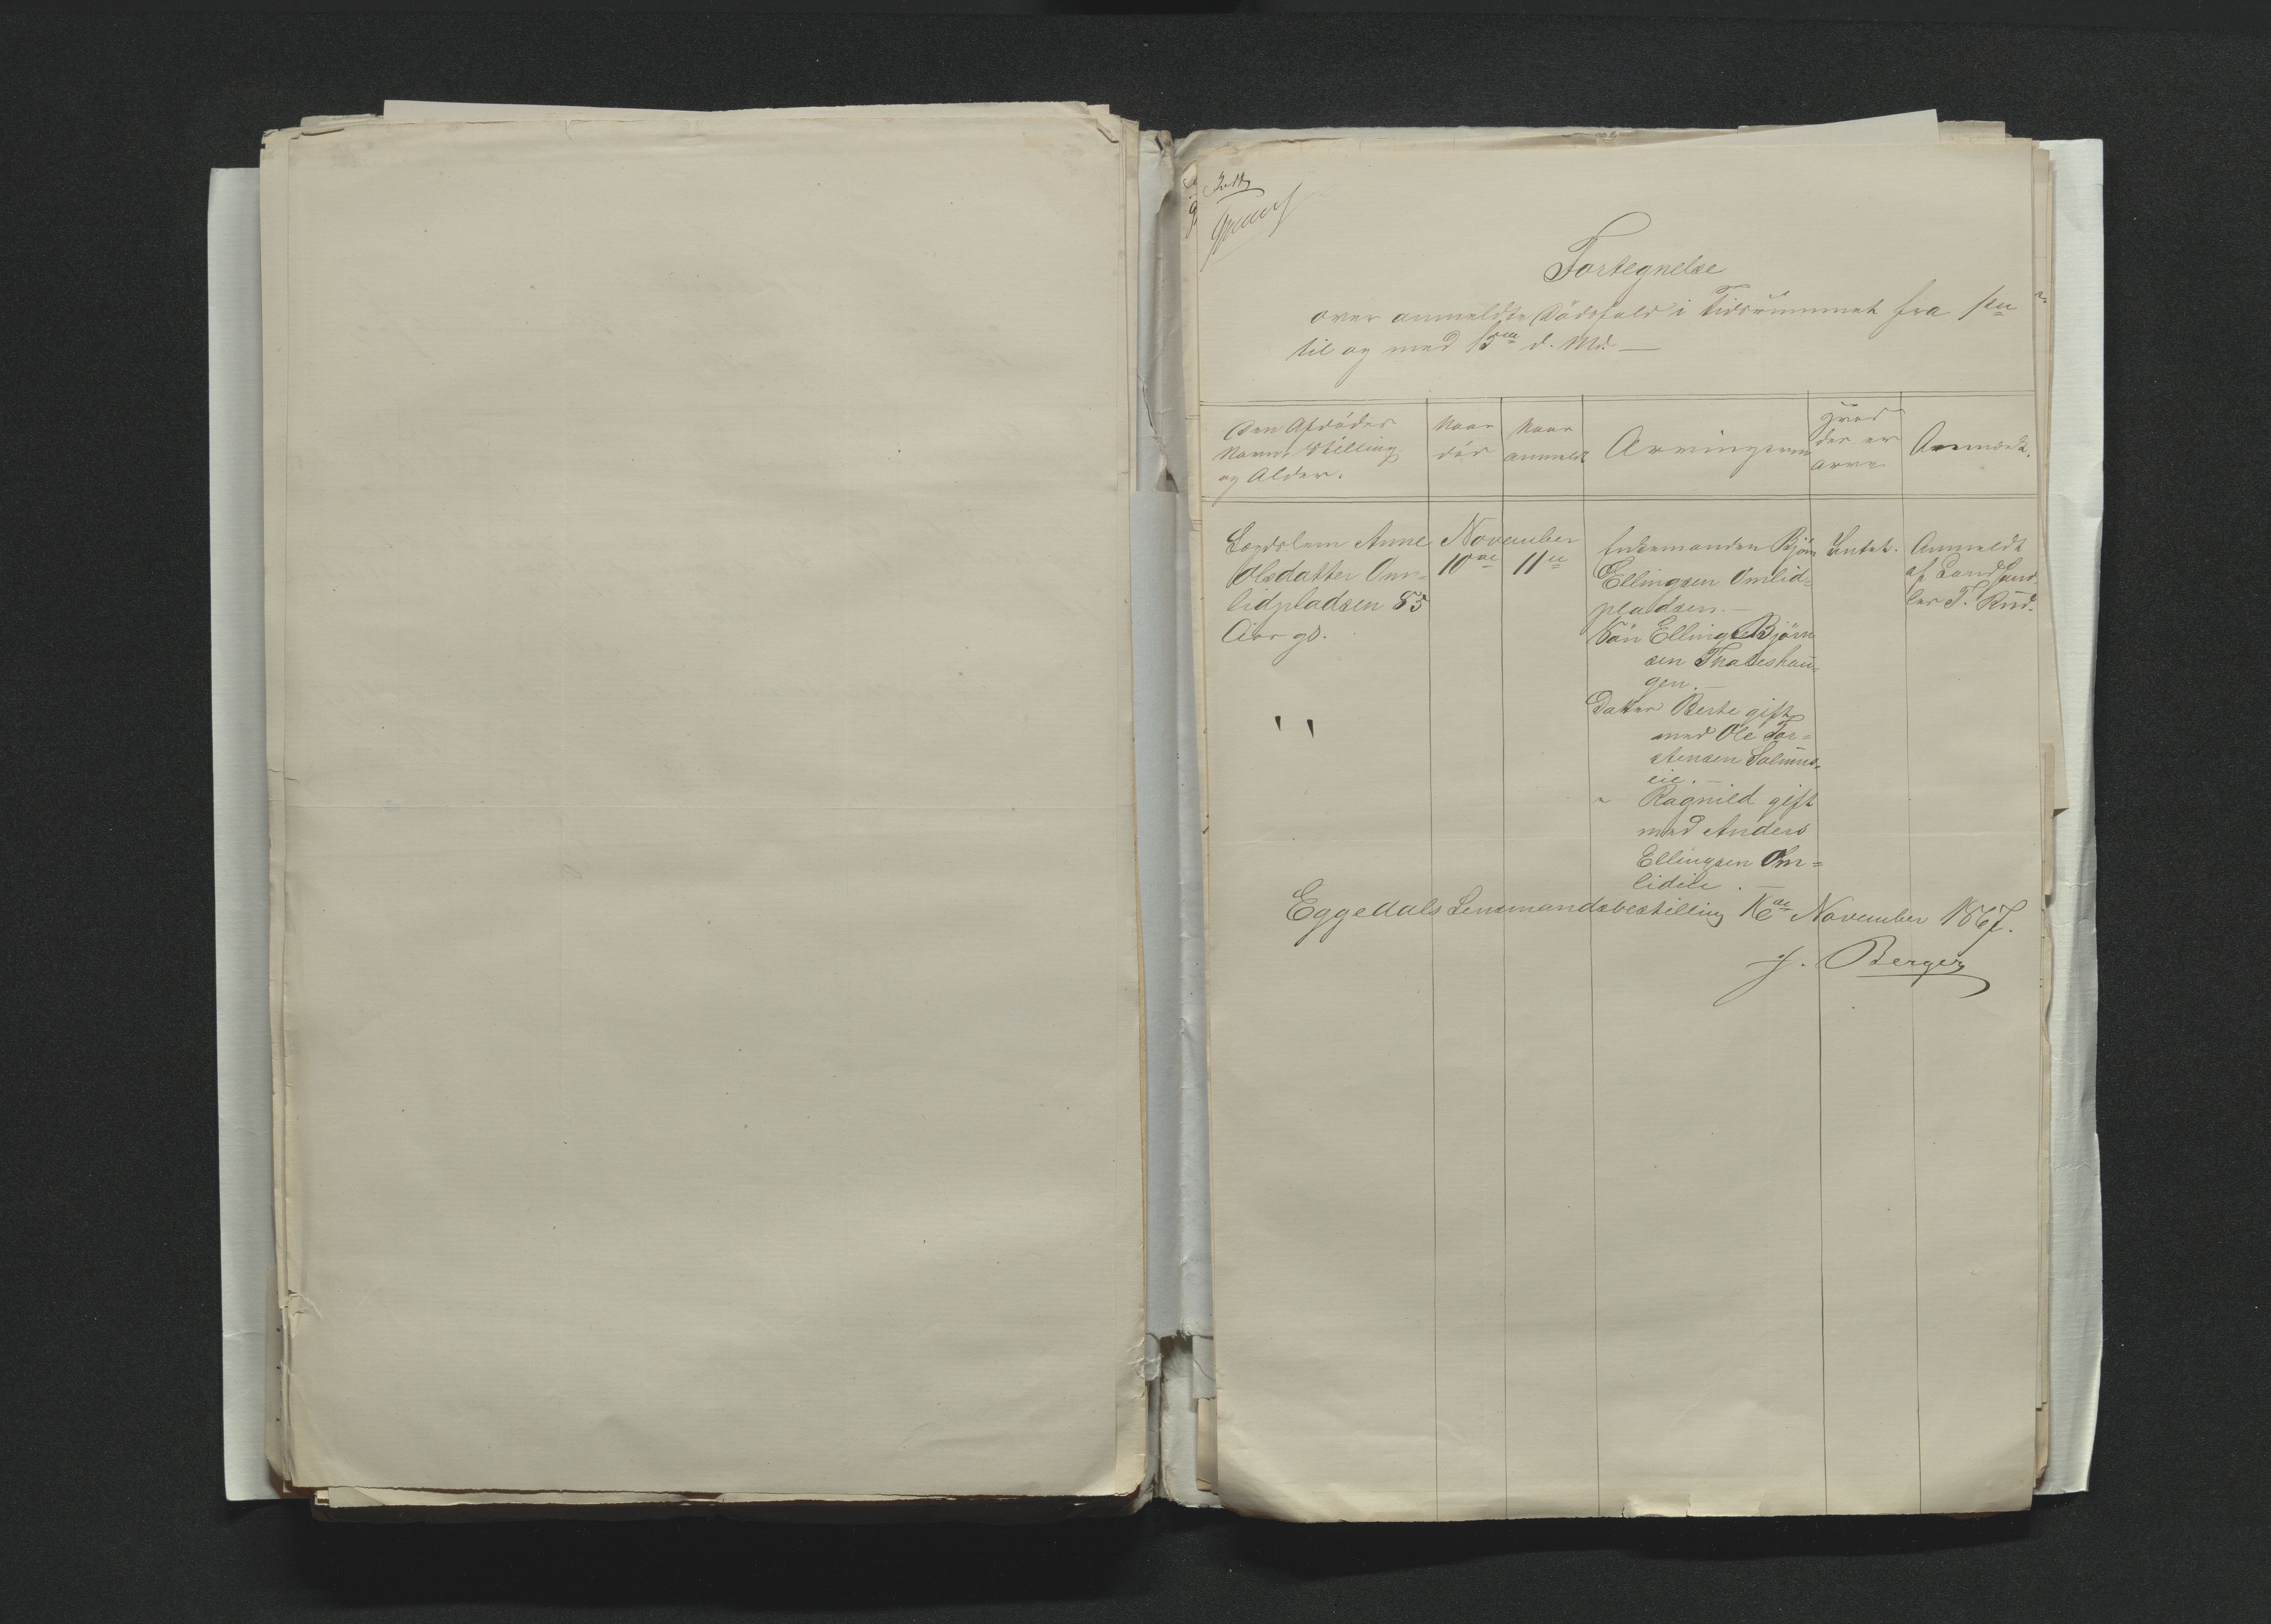 Fortegnelse
over anmeldte Dödsfald i Tidsrummet fra 1ste
til og med 15de d. Md. —
Den Afdödes
Navn, Stilling
og Alder.
Naar
död
Naar
anmeldt
Arvingerne
Hvad
der er
arve
Anmærk.
Lægdslem Anne
Olsdatter Om=
lidpladsen 85
Aar gl.
November
10de
11te
Enkemanden Björn
Ellingsen Omlid=
pladsen. —
Sön Elling Björn
sen Thabeshau=
gen. —
Datter Berte gift
med Ole Tor=
stensen Solums=
eie. —
" Ragnild gift
med Anders
Ellingsen Om=
lideie. —
Intet.
Anmeldt
af Landhand
ler T. Rud.
Eggedals Lensmandsbestilling 16de November 1867.
J. Berger